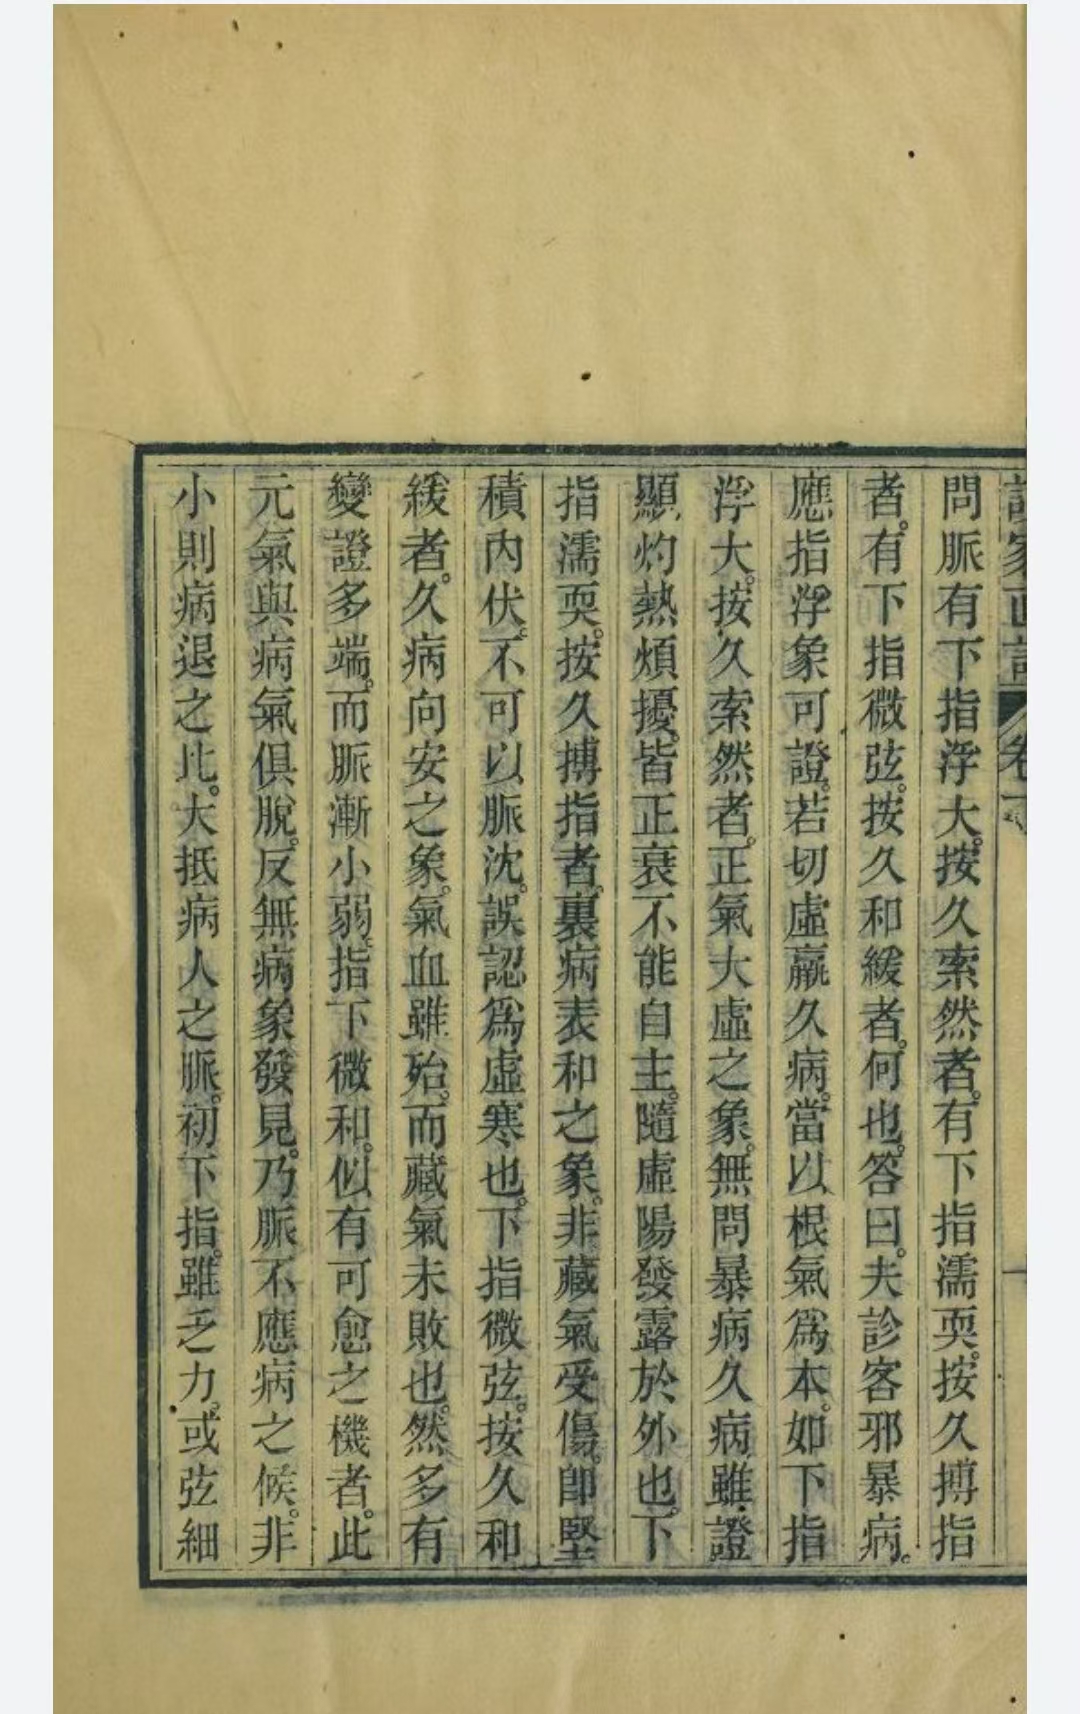 問脈有下指浮大。按久索然者。有下指濡耎。按久搏指
者。有下指微弦。按久和緩者。何也。答曰。夫診客邪暴病。
應指浮象可證。若切虛羸久病。當以根氣爲本。如下指
浮大。按久索然者。正氣大虛之象。無問暴病久病。雖證
顯灼熱煩擾。皆正衰不能自主。隨虛陽發露於外也。下
指濡耎。按久搏指者。裏病表和之象。非藏氣受傷。卽堅
積內伏。不可以脈沈。誤認爲虛寒也。下指微弦。按久和
緩者。久病向安之象。氣血雖殆。而藏氣未敗也。然多有
變證多端。而脈漸小弱。指下微和。似有可愈之機者。此
元氣與病氣俱脫。反無病象發見。乃脈不應病之候。非
小則病退之比。大抵病人之脈。初下指。雖乏力。或弦細